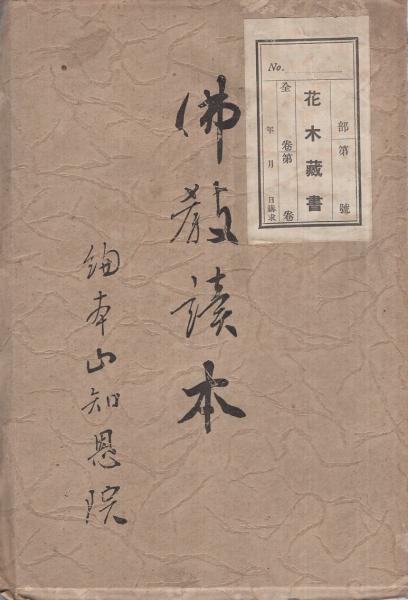 No.
部第 號
花木藏書
全 卷第 卷
年 月 日購求
佛教讀本
總本山知恩院